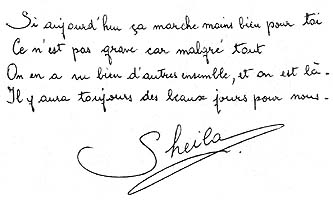 Si aujourd'hui ça marche moins bien pour toi
Ce n'est pas grave car malgré tout
On en a vu bien d'autres ensemble, et on est là.
Il y aura toujours des beaux jours pour nous.
Sheila